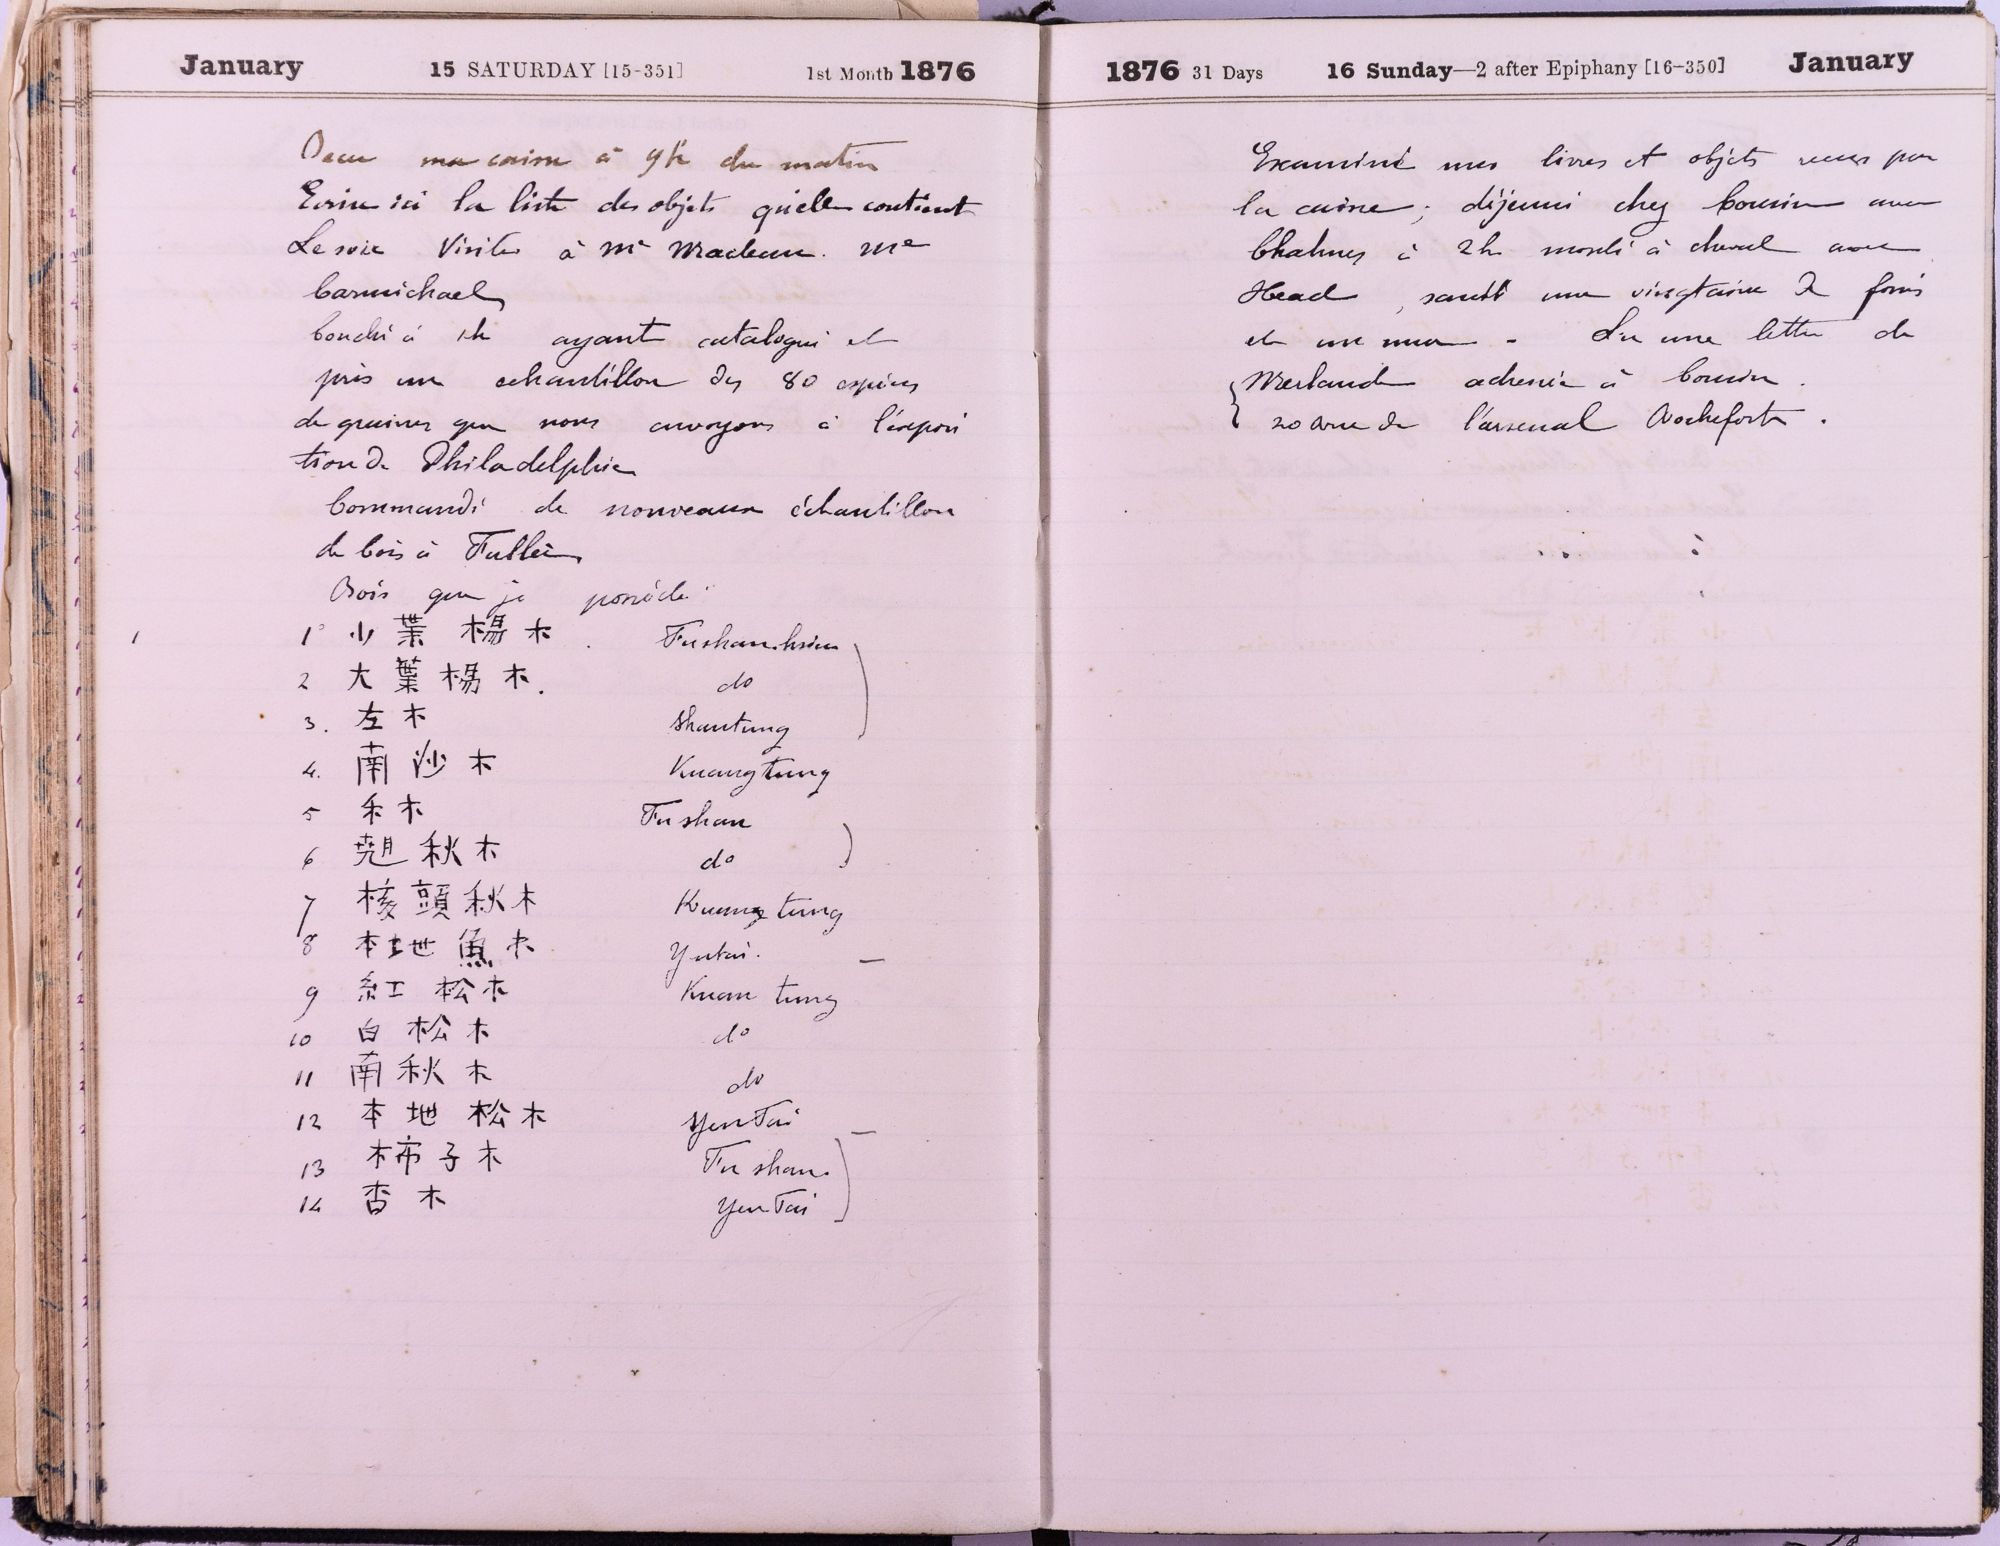 January 15 SATURDAY [15-351] 1st Month 1876
Recu ma caisse à 9h du matin
Ecrire ici la liste des objets qu'elle contient
Le soir visite à Mr Maclean. Me
Carmichael
Couché à 1h ayant catalogué et
pris un echantillon des 80 espèces
de graines que nous envoyons à l'exposi
tion de Philadelphie
Commandé de nouveaux échantillon
de bois à Fullei
Bois que je possède:
1° 小葉楊木. Fushan.hsien
2 大葉楊木. do
3. 左木 Shantung
4. 南沙木 Kuangtung
5 禾木 Fu shan
6 秋木 do
7 核頭秋木 Kuang tung
8 本地魚木 Yutai.
9 紅松木 Kuan tung
10 白松木 do
11 南秋木 do
12 本地松木 Yen Tai
13 柿子木 Fu shan.
14 杏木 Yen Tai
1876 31 Days 16 Sunday—2 after Epiphany [16-350] January
Examiné mes livres et objets recus par
la caisse; déjeuné chez Cousin avec
Chalmes à 2h monté à cheval avec
Head, sauté une vingtaine de fossés
et un mur - Lu une lettre de
adressée à Cousin.
20 Rue de l'arsenal Rochefort.